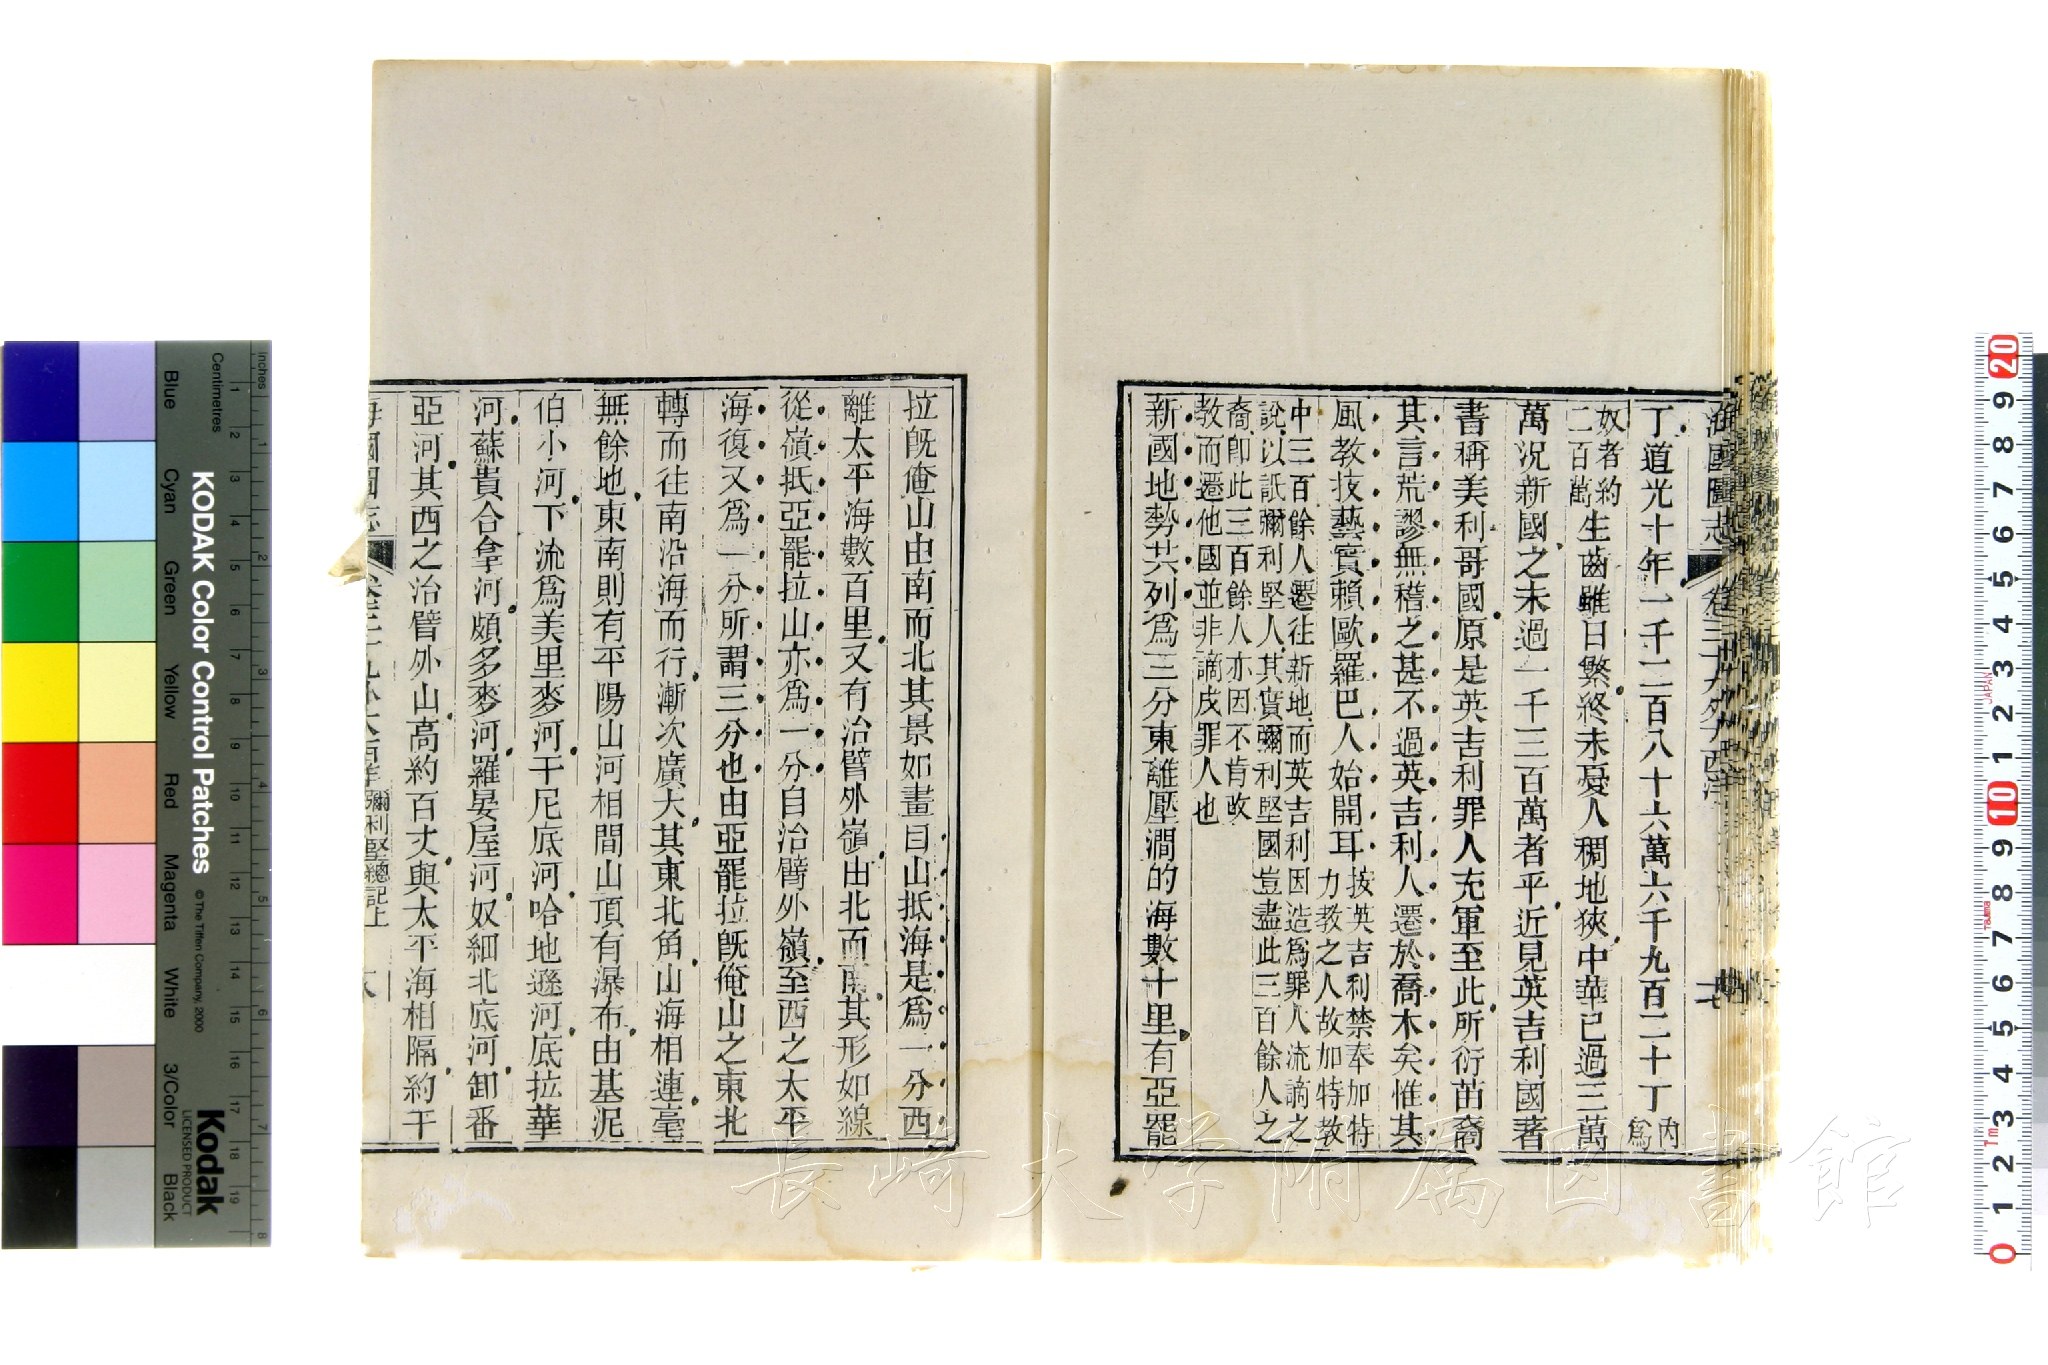 海國圖志 卷三十九外大西洋 十七
丁道光十年一千二百八十六萬六千九百二十丁內爲
奴者約二百萬生齒雖日繁終未憂人稠地狹中華已過三萬
萬況新國之未過一千三百萬者乎近見英吉利國著
書稱美利哥國原是英吉利罪人充軍至此所衍苗裔
其言荒謬無稽之甚不過英吉利人遷於喬木矣惟其
風教技藝實賴歐羅巴人始開耳按英吉利禁奉加特力教之人故加特教
中三百餘人遷往新地而英吉利因造爲罪人流謫之
說以詆彌利堅人其實彌利堅國豈盡此三百餘人之
裔卽此三百餘人亦因不肯改
教而遷他國並非謫戍罪人也
新國地勢共列爲三分東離壓澗的海數十里有亞罷
拉旣俺山由南而北其景如畫自山抵海是爲一分西
離太平海數百里又有治臂外嶺由北而南其形如線
從嶺抵亞罷拉山亦爲一分自治臂外嶺至西之太平
海復又爲一分所謂三分也由亞罷拉旣俺山之東北
轉而往南沿海而行漸次廣大其東北角山海相連毫
無餘地東南則有平陽山河相間山頂有瀑布由基泥
伯小河下流爲美里麥河干尼底河哈地遜河底拉華
河蘇貴合拿河頗多麥河羅晏屋河奴細北底河卸番
亞河其西之治臂外山高約百丈與太平海相隔約千
海國圖志 卷三十九外大西洋 彌利堅總記上